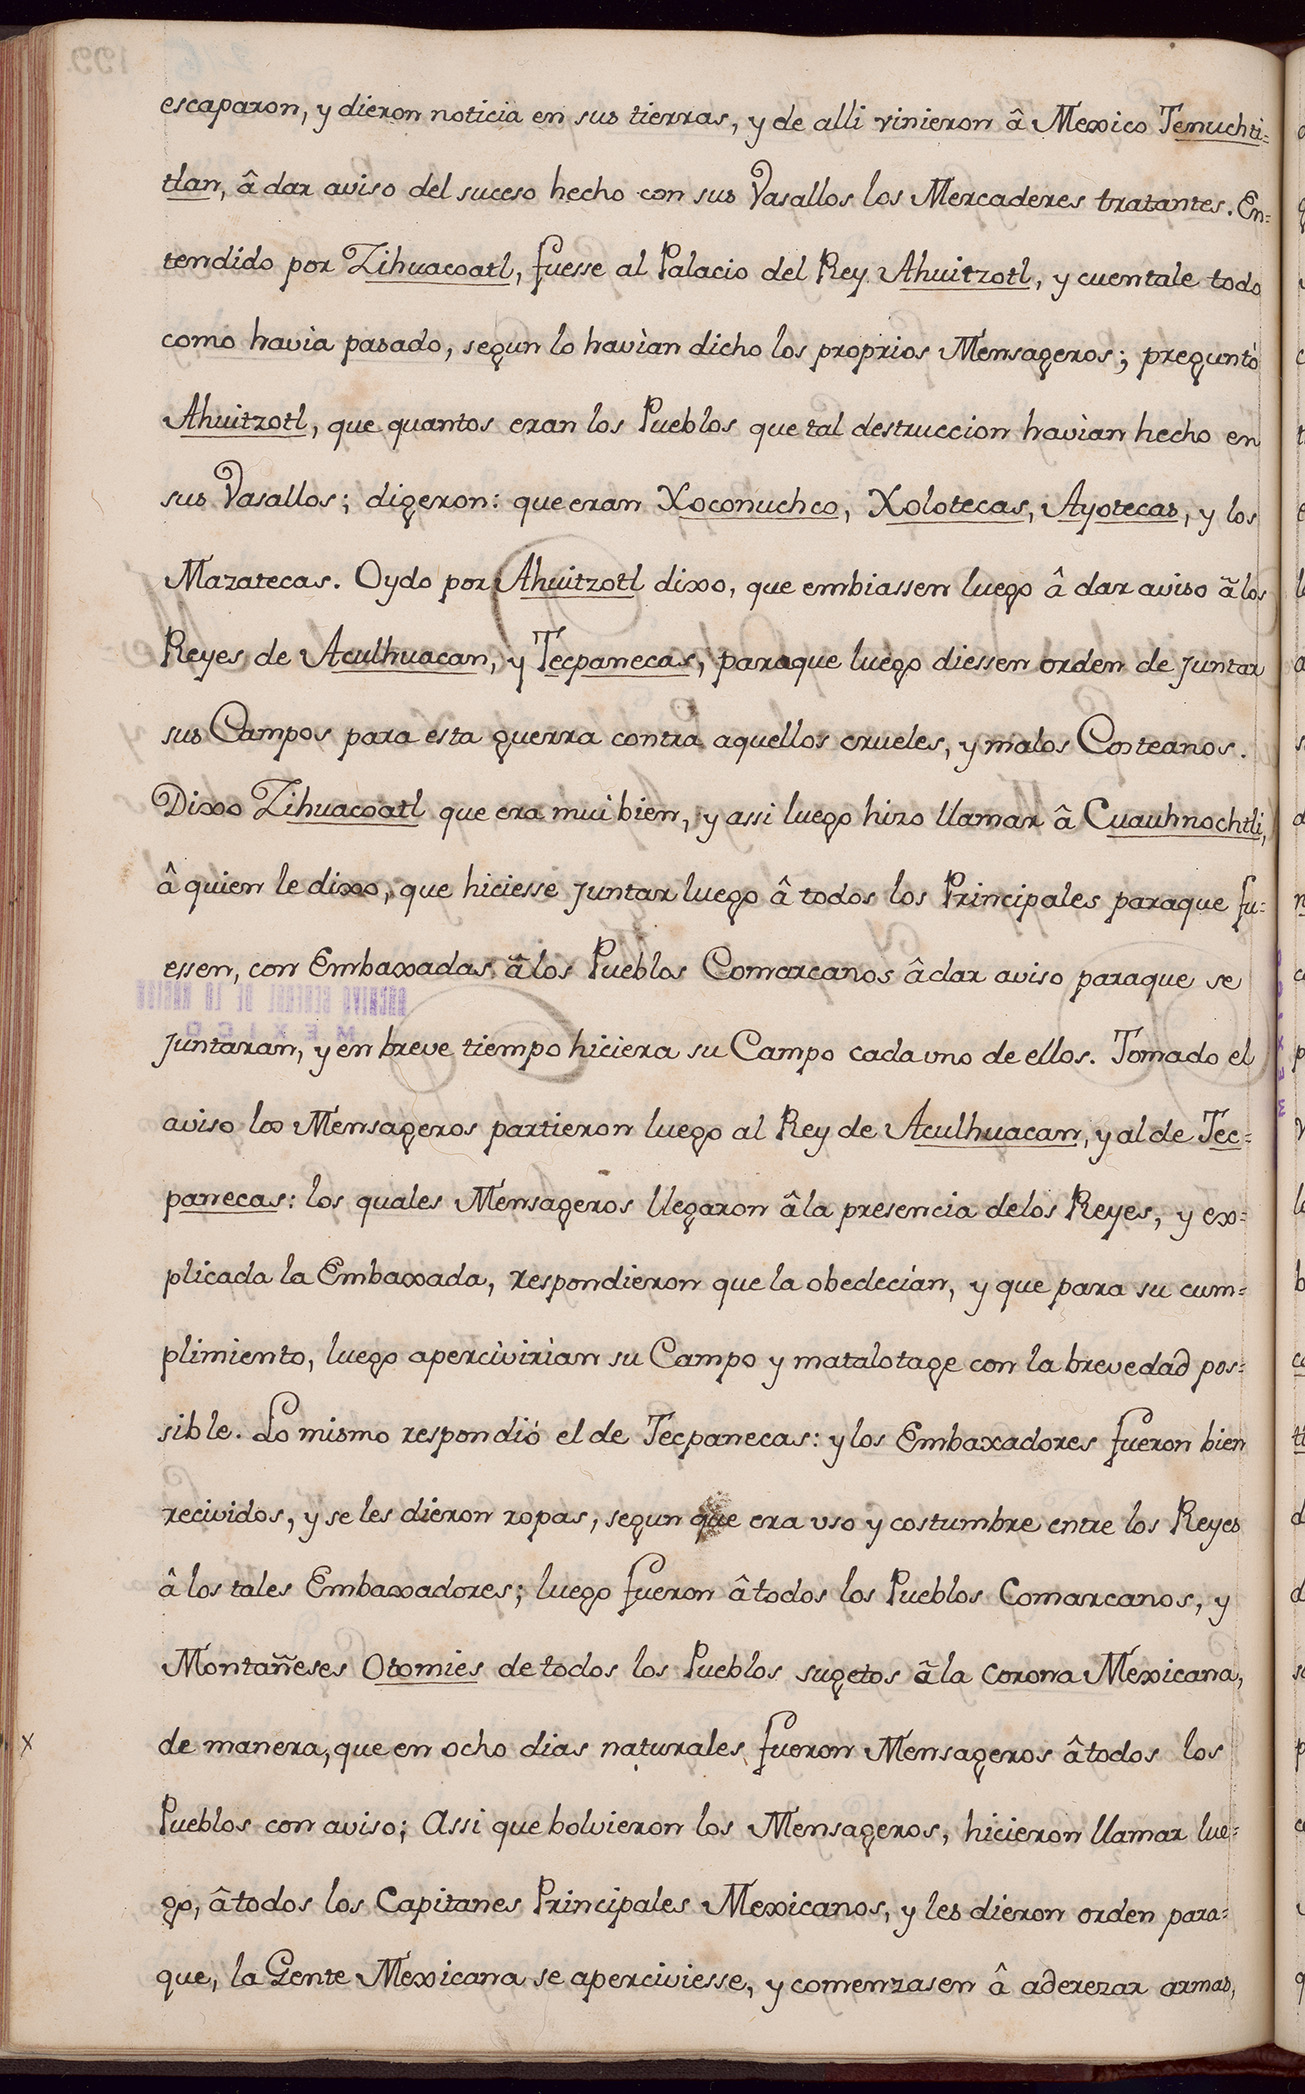 escaparon, y dieron noticia en sus tierras, y de alli vinieron â Mexico Temuchti=
tlan, â dar aviso del suceso hecho con sus Vasallos los Mercaderes tratantes. En=
tendido por Zihuacoatl, fuesse al Palacio del Rey Ahuitzotl, y cuentale todo
como havìa pasado, segun lo havìan dicho los proprios Mensageros; preguntò
Ahuitzotl, que quantos eran los Pueblos que tal destruccion havìan hecho en
sus Vasallos; digeron: que eran Xoconuchco, Xolotecas, Ayotecas, y los
Mazatecas. Oydo por Ahuitzotl dixo, que embiassen luego â dar aviso â los
Reyes de Aculhuacan, y Tecpanecas, paraque luego diessen orden de juntar
sus Campos para esta guerra contra aquellos crueles, y malos Costeanos.
Dixo Zihuacoatl que era mui bien, y assi luego hizo llamar â Cuauhnochtli,
â quien le dixo, que hiciesse juntar luego â todos los Principales paraque fu=
essen, con Embaxadas â los Pueblos Comarcanos â dar aviso paraque se
juntaran, y en breve tiempo hiciera su Campo cada uno de ellos. Tomado el
aviso los Mensageros partieron luego al Rey de Aculhuacan, y al de Tec=
panecas: los quales Mensageros llegaron â la presencia delos Reyes, y ex=
plicada la Embaxada, respondieron que la obedecían, y que para su cum=
plimiento, luego apercivirìan su Campo y matalotage con la brevedad pos=
sible. Lo mismo respondió el de Tecpanecas: y los Embaxadores fueron bien
recividos, y se les dieron ropas, segun que era uso y costumbre entre los Reyes
â los tales Embaxadores; luego fueron â todos los Pueblos Comarcanos, y
Montañeses Otomies de todos los Pueblos sugetos â la corona Mexicana,
x de manera, que en ocho dias naturales fueron Mensageros â todos los
Pueblos con aviso; Assi que bolvieron los Mensageros, hicieron llamar lue=
go, â todos los Capitanes Principales Mexicanos, y les dieron orden para=
que, la Gente Mexicana se aperciviesse, y comenzasen â aderezar armas,